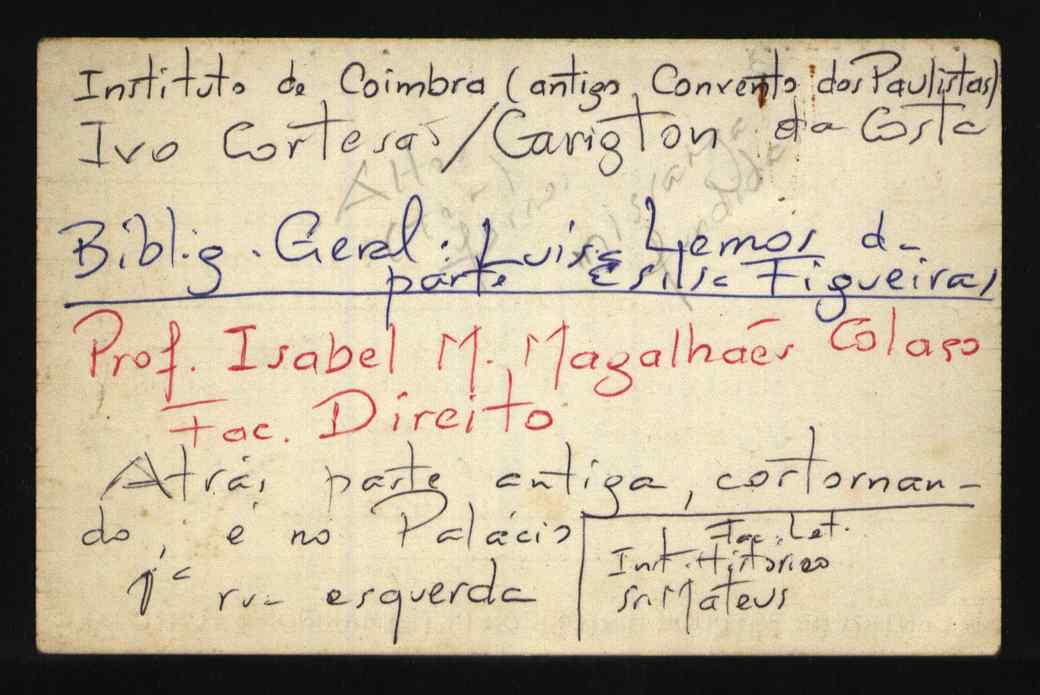 Instituto de Coimbra (antigo Convento dos Paulistas)
Ivo Cortesão/Garigton da Costa
Bibliog. Geral: Luísa Lemos da
parte Silva Figueiras
Prof. Isabel M. Magalhães Colaço
Fac. Direito
Atrás parte antiga, cortornan-
do, é no Palácio
1ª rua esquerda
Fac. Let.
Inst. Histórico
Sr. Mateus